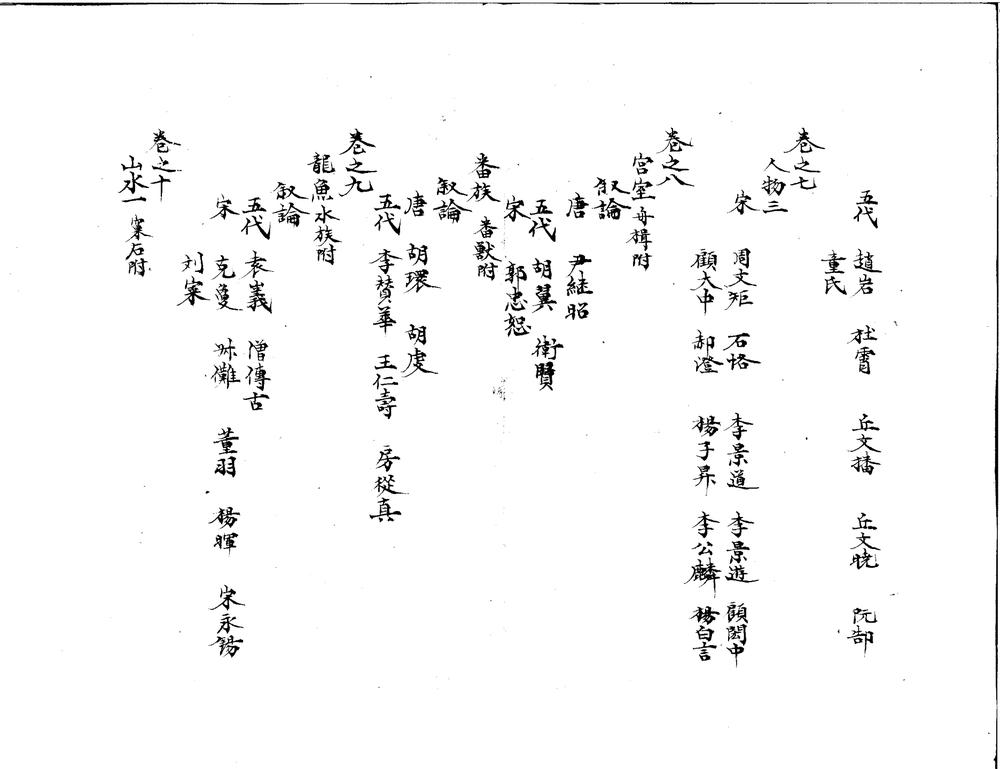 五代 趙岩 杜霄 丘文播 丘文曉 阮郜
童氏
卷之七
人物三
宋 周文矩 石恪 李景道 李景遊 顧閎中
顧大中 郝澄 楊子昇 李公麟 楊白言
卷之八
宮室 舟楫附
叙論
唐 尹继昭
五代 胡翼 衛賢
宋 郭忠恕
番族 番獸附
叙論
唐 胡環 胡虔
五代 李賛華 王仁壽 房從真
卷之九
龍魚 水族附
叙論
五代 袁義 僧傳古
宋 克敻 叔儺 董羽 楊暉 宋永錫
刘寀
卷之十
山水一 窠石附